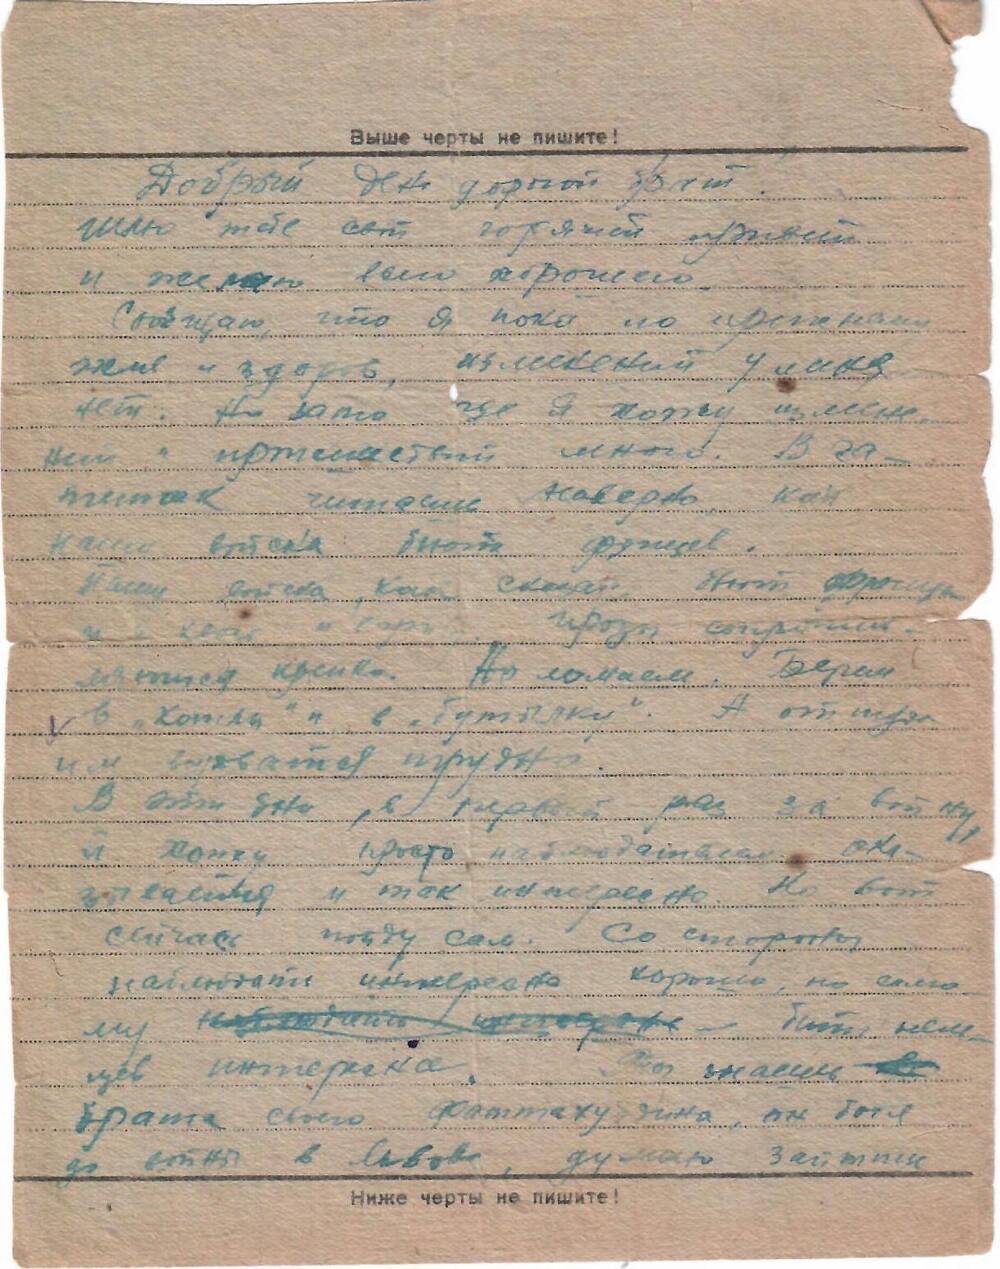 Выше черты не пишите!
Добрый день дорогой брат.
Шлю тебе свой горячий привет
и желаю всего хорошего.
Сообщаю, что я пока по прежнему
жив и здоров, изменений у меня
нет. Но зато где я хожу измене-
ний и происшествий много. В га-
зетах читаешь наверно, как
наши войска бьют фрицев.
Наши войска, бьют фрицев
и в хвост и в гриву. Фрицы сопротив-
ляются крепко. Но ломаем. Берем
в „котлы" и в „бутылку". А оттуда
им вырваться трудно.
В эти дни, в первый раз за войну,
я хожу просто наблюдателем. Ока-
зывается и так интересно. Но вот
сейчас пойду сам. Со стороны
наблюдать интересно хорошо, но само-
му наблюдать интересно – бить нем-
цев интересно. Ты знаешь
брата своего Фаттахутдина, он был
до войны в Львове, думаю зайти
Ниже черты не пишите!